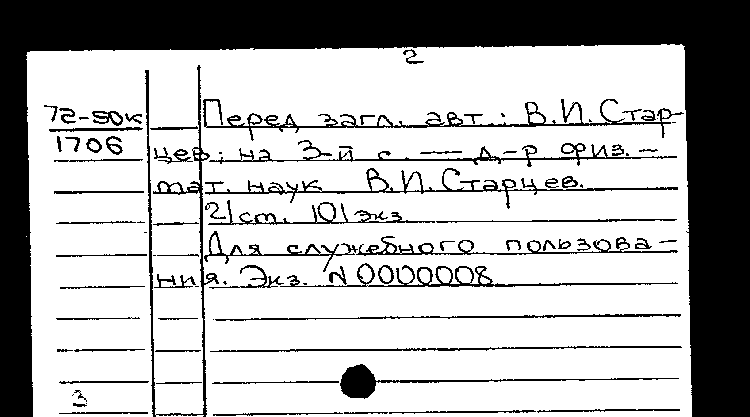 2
72-90к
1706
Перед загл. авт.: В.И. Стар-
цев; на 3-й с. — д-р физ.-
мат. наук В.И. Старцев.
21 ст. 101 экз
Для служебного пользова-
ния. Экз. N 0000008
3